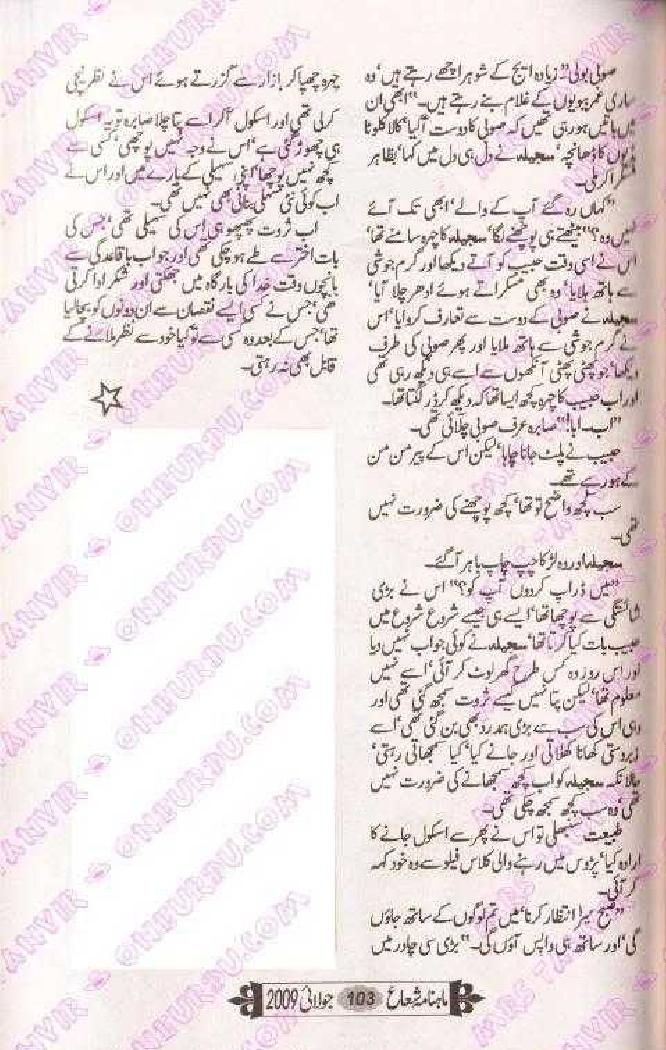 صوفی بولی ”زیادہ ایج کے شوہر اچھے رہتے ہیں‘ وہ
ساری عمر بیویوں کے غلام بنے رہتے ہیں۔“ ابھی ان
میں باتیں ہو رہی تھیں کہ صوفی کا دوست آگیا‘ کالا کلوٹا
ہڈیوں کا ڈھانچہ‘ سجیلہ نے دل ہی دل میں کہا‘ بظاہر
مسکرا کر ملی۔
”کہاں رہ گئے آپ کے والے‘ ابھی تک آئے
نہیں وہ؟“ بیٹھتے ہی پوچھنے لگا‘ سجیلہ کا چہرہ سامنے تھا‘
اس نے اسی وقت حبیب کو آتے دیکھا اور گرم جوشی
سے ہاتھ ہلایا‘ وہ بھی مسکراتے ہوئے ادھر چلا آیا‘
سجیلہ نے صوفی کے دوست سے تعارف کروایا‘ اس
نے گرم جوشی سے ہاتھ ملایا اور پھر صوفی کی طرف
دیکھا‘ جو پھٹی پھٹی آنکھوں سے اسے ہی دیکھ رہی تھی
اور اب حبیب کا چہرہ کچھ ایسا تھا کہ دیکھ کر ڈر لگتا تھا۔
”اب۔ ابا!“ صابرہ عرف صوفی چلائی تھی۔
حبیب نے پلٹ جانا چاہا‘ لیکن اس کے پیر من من
کے ہو رہے تھے۔
سب کچھ واضح تو تھا‘ کچھ پوچھنے کی ضرورت نہیں
تھی۔
سجیلہ اور وہ لڑکا چپ چاپ باہر آگئے۔
”میں ڈراپ کردوں آپ کو؟“ اس نے بڑی
شائستگی سے پوچھا تھا‘ ایسے ہی جیسے شروع شروع میں
حبیب بات کیا کرتا تھا‘ سجیلہ نے کوئی جواب نہیں دیا
اور اس روز وہ کس طرح گھر لوٹ کر آئی‘ اسے نہیں
معلوم تھا‘ لیکن پتا نہیں کیسے ثروت سمجھ گئی تھی اور
وہی اس کی سب سے بڑی ہمدرد بھی بن گئی تھی‘ اسے
زبردستی کھانا کھلاتی اور جانے کیا‘ کیا سمجھاتی رہتی‘
حالانکہ سجیلہ کو اب کچھ سمجھانے کی ضرورت نہیں
تھی‘ وہ سب کچھ سمجھ چکی تھی۔
طبیعت سنبھلی تو اس نے پھر سے اسکول جانے کا
ارادہ کیا‘ پڑوس میں رہنے والی کلاس فیلو سے وہ خود کہہ
کر آئی۔
”صبح میرا انتظار کرنا‘ میں تم لوگوں کے ساتھ جاؤں
گی‘ اور ساتھ ہی واپس آؤں گی۔“ بڑی سی چادر میں
چہرہ چھپا کر بازار سے گزرتے ہوئے اس نے نظر نیچی
کرلی تھی اور اسکول آکر اسے پتا چلا صابرہ تو یہ اسکول
ہی چھوڑ گئی ہے‘ اس نے وجہ نہیں پوچھی‘ کسی سے
کچھ نہیں پوچھا‘ اپنی سہیلی کے بارے میں اور اس نے
اب کوئی نئی سہیلی بنائی بھی نہیں تھی۔
اب ثروت پھپھو ہی اس کی سہیلی تھی‘ جس کی
بات اختر سے طے ہو چکی تھی اور جو اب باقاعدگی سے
پانچوں وقت خدا کی بارگاہ میں جھکتی اور شکر ادا کرتی
تھی‘ جس نے کسی ایسے نقصان سے ان دونوں کو بچا لیا
تھا‘ جس کے بعد وہ کسی سے تو کیا خود سے نظر ملانے کے
قابل بھی نہ رہتی۔
ماہنامہ شعاع 103 جولائی 2009